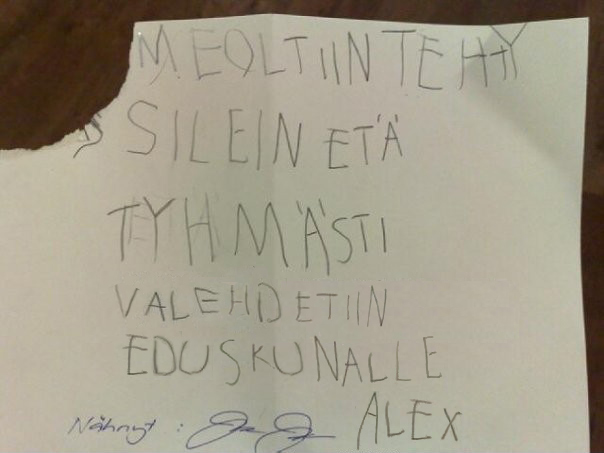 MEOLTIIN TEHTY
SILEIN ETÄ
TYHMÄSTI
VALEHDETIIN
EDUSKUNALLE
ALEX
Nähnyt :